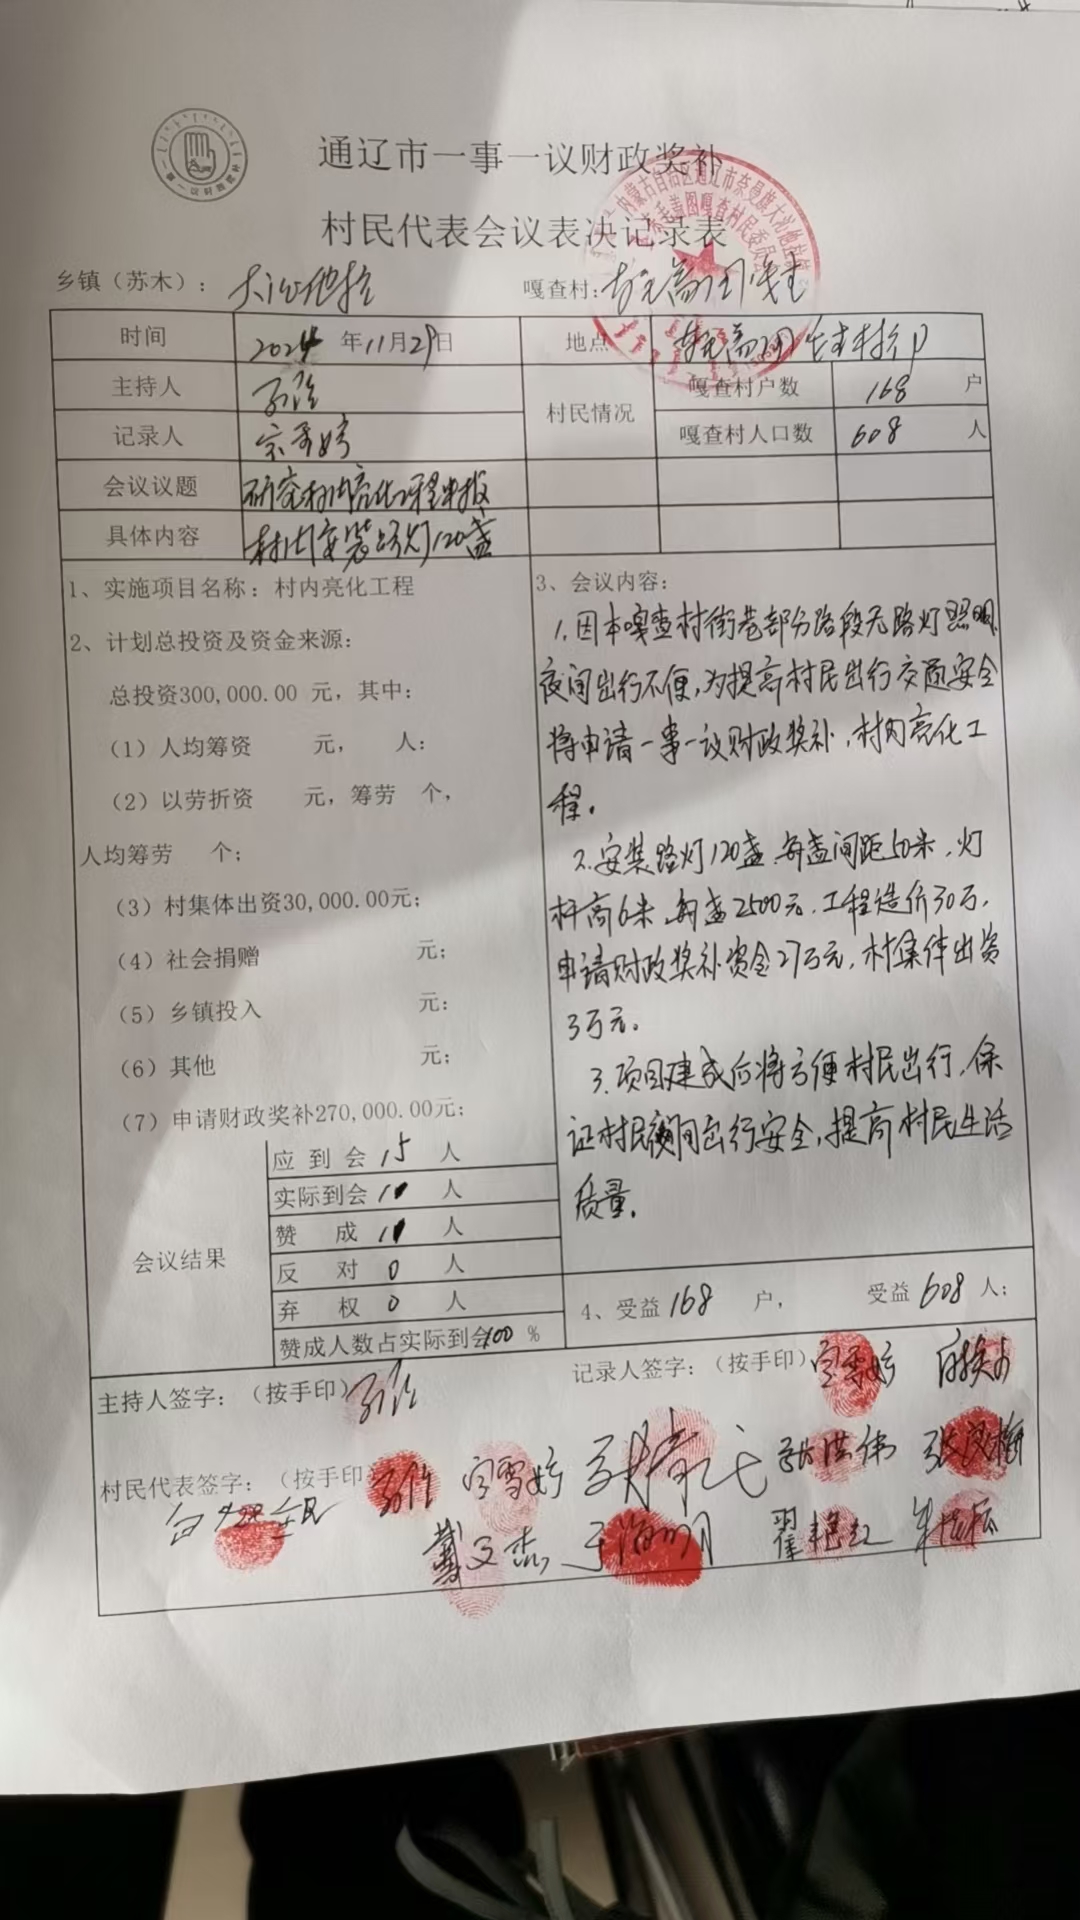 通辽市一事一议财政奖补
村民代表会议表决记录表
乡镇（苏木）：大沁他拉 嘎查村：
时间 2024年11月29日 地点
主持人 村民情况 嘎查村户数 168 户
记录人 嘎查村人口数 608 人
会议议题 研究村内亮化工程申报
具体内容 村内安装路灯120盏
1、实施项目名称：村内亮化工程
2、计划总投资及资金来源：
总投资300,000.00 元，其中：
（1）人均筹资 元， 人：
（2）以劳折资 元，筹劳 个，
人均筹劳 个；
（3）村集体出资30,000.00元；
（4）社会捐赠 元；
（5）乡镇投入 元；
（6）其他 元；
（7）申请财政奖补270,000.00元；
3、会议内容：
1.因本嘎查村街巷部分路段无路灯照明,
夜间出行不便,为提高村民出行交通安全
将申请一事一议财政奖补,村内亮化工
程.
2.安装路灯120盏.每盏间距50米.灯
杆高6米.每盏2500元.工程造价30万.
申请财政奖补资金27万元,村集体出资
3万元.
3.项目建成后将方便村民出行,保
证村民夜间出行安全,提高村民生活
质量.
会议结果
应到会 15 人
实际到会 人
赞成 人
反对 0 人
弃权 0 人
赞成人数占实际到会100 %
4、受益168 户， 受益608人；
主持人签字：（按手印） 记录人签字：（按手印）
村民代表签字：（按手印） 张洪伟
戴文杰 于海明 翟艳红